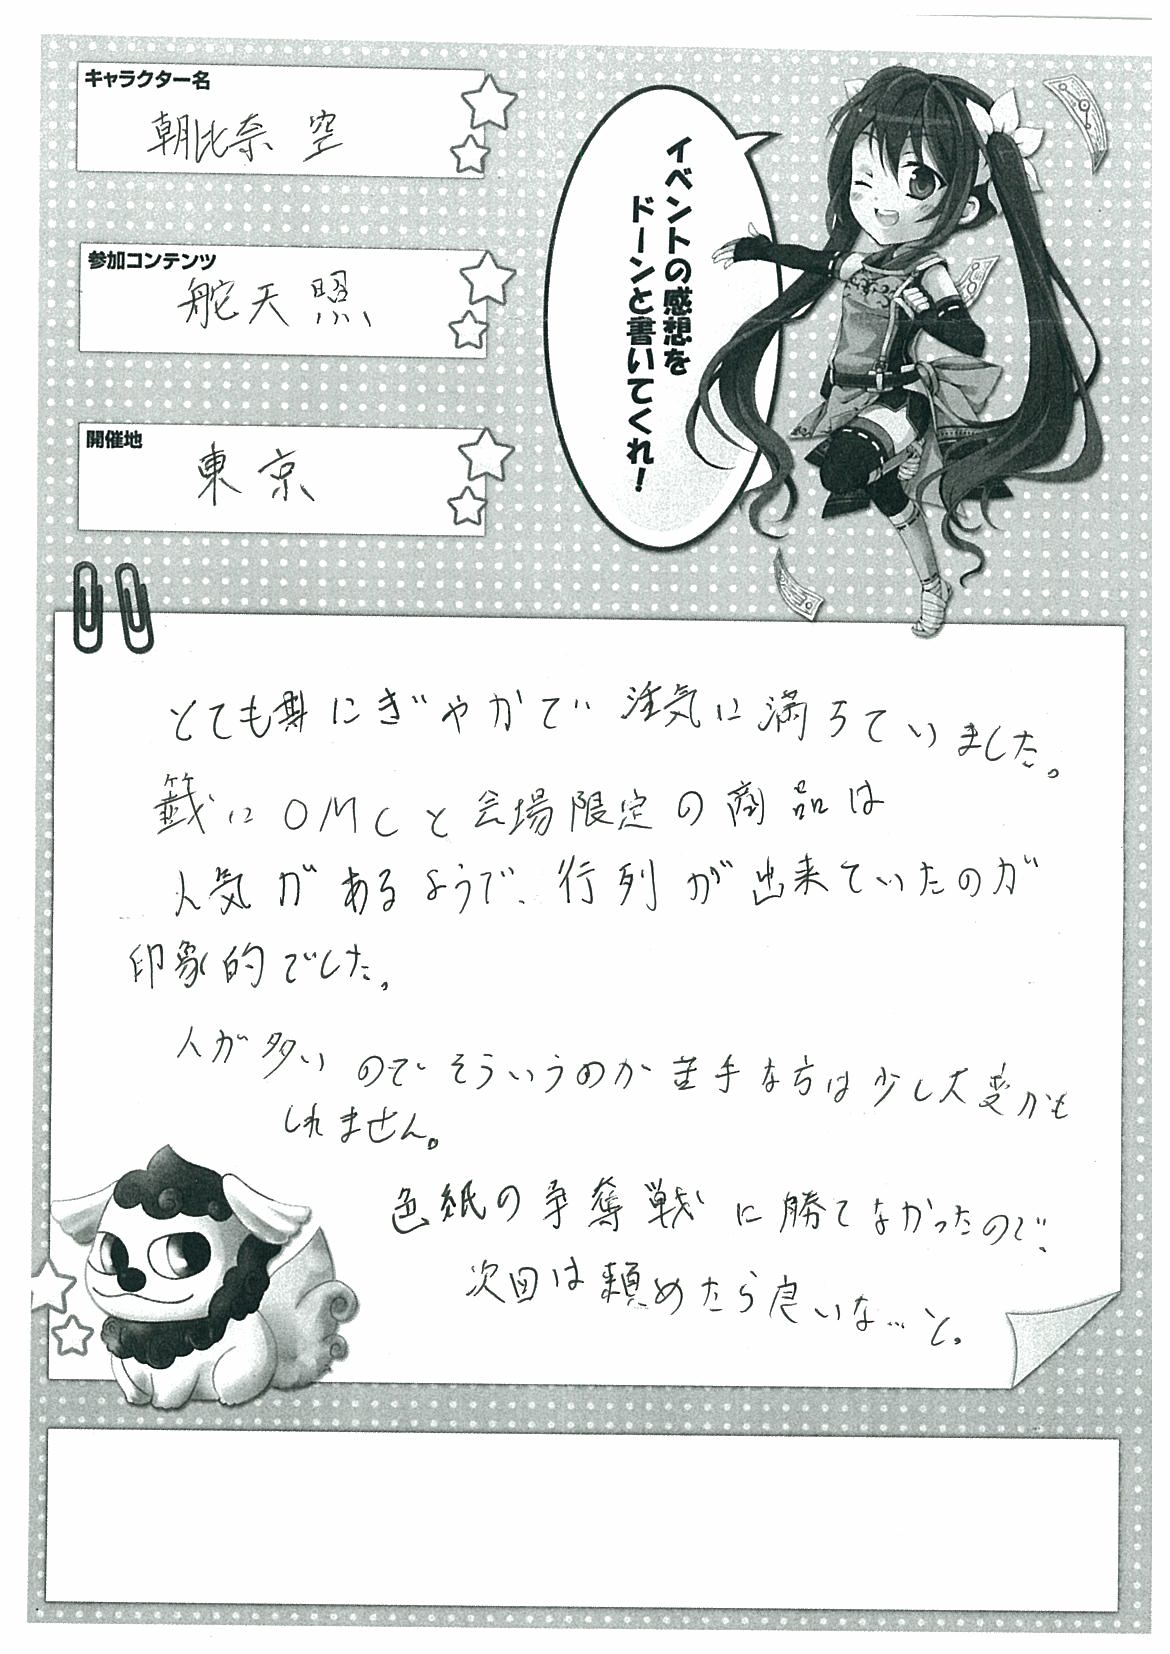 キャラクター名
朝比奈 空
参加コンテンツ
舵天照
開催地
東京
イベントの感想を
ドーンと書いてくれ!
とても にぎやかで 活気に満ちていました。
籤にOMCと会場限定の商品は
人気があるようで、行列が出来ていたのが
印象的でした。
人が多いのでそういうのが苦手な方は少し大変かも
しれません。
色紙の争奪戦に勝てなかったので、
次回は頼めたら良いな…と。